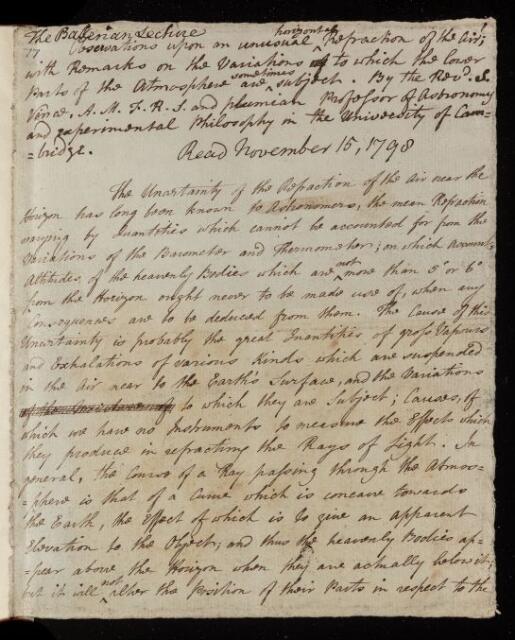 The Bakerian Lecture
horizontal
17 Observations upon an unusual ^ Refraction of the Air;
with Remarks on the Variations to which the lower
sometimes
Parts of the Atmosphere are ^ subject. By the Revd. S.
Vince, A. M. F. R. S. and plumian Professor of Astronomy
and experimental Philosophy in the University of Cam-
-bridge.
Read November 15, 1798
The Uncertainty of the Refraction of the Air near the
Horizon has long been known to Astronomers, the mean Refraction
varying by Quantities which cannot be accounted for from the
Variations of the Barometer and Thermometer; on which Account
not
Altitudes of the heavenly Bodies which are ^ more than 5° or 6°
from the Horizon ought never to be made use of, when any
Consequences are to be deduced from them. The Cause of this
Uncertainty is probably the great Quantities of gross Vapours
and Exhalations of various Kinds which are suspended
in the Air near to the Earth's Surface, and the Variations
to which they are Subject; Causes, of
which we have no Instruments to measure the Effects which
they produce in refracting the Rays of Light. In
general, the Course of a Ray passing through the Atmos-
-phere is that of a Curve which is concave towards
the Earth, the Effect of which is to give an apparent
Elevation to the Object; and thus the heavenly Bodies ap-
-pear above the Horizon when they are actually below it;
not
but it will ^ alter the Position of their Parts in respect to the